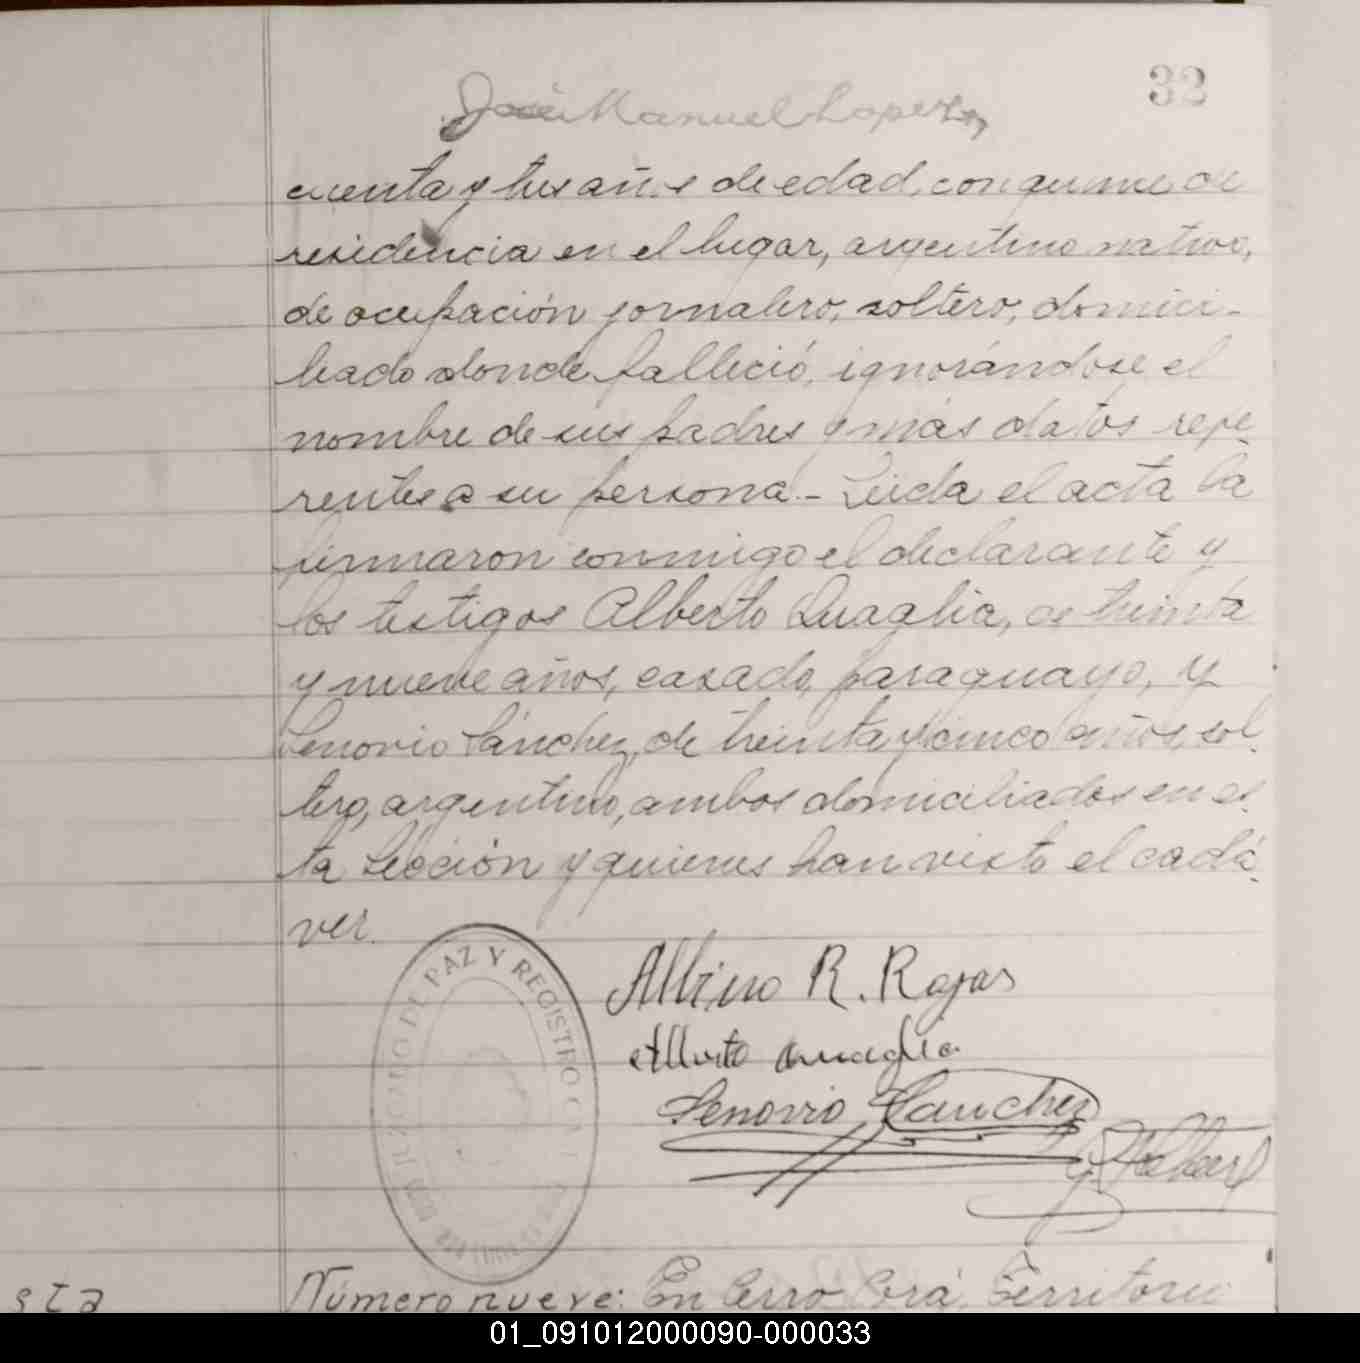 32
José Manuel Lopez
cuenta y tres años de edad, con quince de
residencia en el lugar, argentino nativo,
de ocupación jornalero, soltero, domici-
liado donde falleció, ignorándose el
nombre de sus padres y más datos refe-
rentes a su persona.- Leida el acta la
firmaron conmigo el declarante y
los testigos Alberto Quaglia, de treinta
y nueve años, casado, paraguayo, y
Senovio Sánchez, de treinta y cinco años, sol-
tero, argentino, ambos domiciliados en es-
ta Sección y quienes han visto el cadá-
ver.
JUZGADO DE PAZ Y REGISTRO
Albino R. Rojas
Alberto Quaglia
Senovio Sanchez
sta
Número nueve: En Cerro Corá, Territorio
01_091012000090-000033